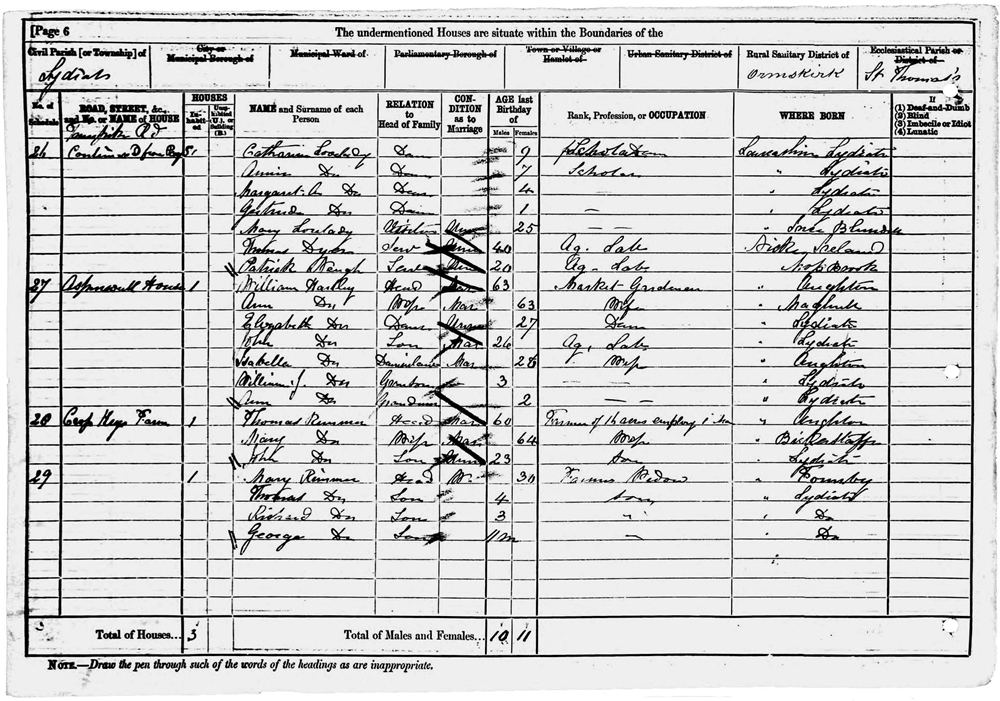 [Page 6 The undermentioned Houses are situate within the Boundaries of the
Civil Parish [or Township] of City or Municipal Borough of Municipal Ward of Parliamentary Borough of Town or Village or Hamlet of Urban Sanitary District of Rural Sanitary District of Ecclesiastical Parish or District of
Lydiate Ormskirk St Thomas's
No. of Schedule ROAD, STREET, &c., and No. or NAME of HOUSE HOUSES Inhabited Uninhabited (U.), or Building (B.) NAME and Surname of each Person RELATION to Head of Family CONDITION as to Marriage AGE last Birthday of Males Females Rank, Profession, or OCCUPATION WHERE BORN If (1) Deaf-and-Dumb (2) Blind (3) Imbecile or Idiot (4) Lunatic
Rd
26 Catharine Lovelady Daur 9 Scholar Lancashire Lydiate
Annie Do Daur 7 Scholar " Lydiate
Margaret A Do Daur 4 " Lydiate
Gertrude Do Daur 1 — " Lydiate
Mary Lovelady 25 — Ince Blundell
Thomas Serv 40 Ag. Lab Ireland
Patrick Serv 20 Ag. Lab
27 House 1 William Head Mar 63 Market Gardener " Aughton
Ann Do Wife Mar 63 Wife " Maghull
Elizabeth Do Daur 27 Daur " Lydiate
John Do Son Mar 26 Ag. Lab " Lydiate
Isabella Do Daurinlaw Mar 28 Wife " Aughton
William J. Do Grandson 3 — " Lydiate
Ann Do 2 — " Lydiate
28 Farm 1 Thomas Rimmer Head Mar 60 Farmer of acres employ 1 " Aughton
Mary Do Wife Mar 64 Wife " Bickerstaffe
John Do Son 23 Son " Lydiate
29 1 Mary Rimmer Head 30 Farmers Widow " Formby
Thomas Do Son 4 Son " Lydiate
Richard Do Son 3 " Do
George Do Son 11m — Do
Total of Houses... 3 Total of Males and Females... 10 11
NOTE.—Draw the pen through such of the words of the headings as are inappropriate.